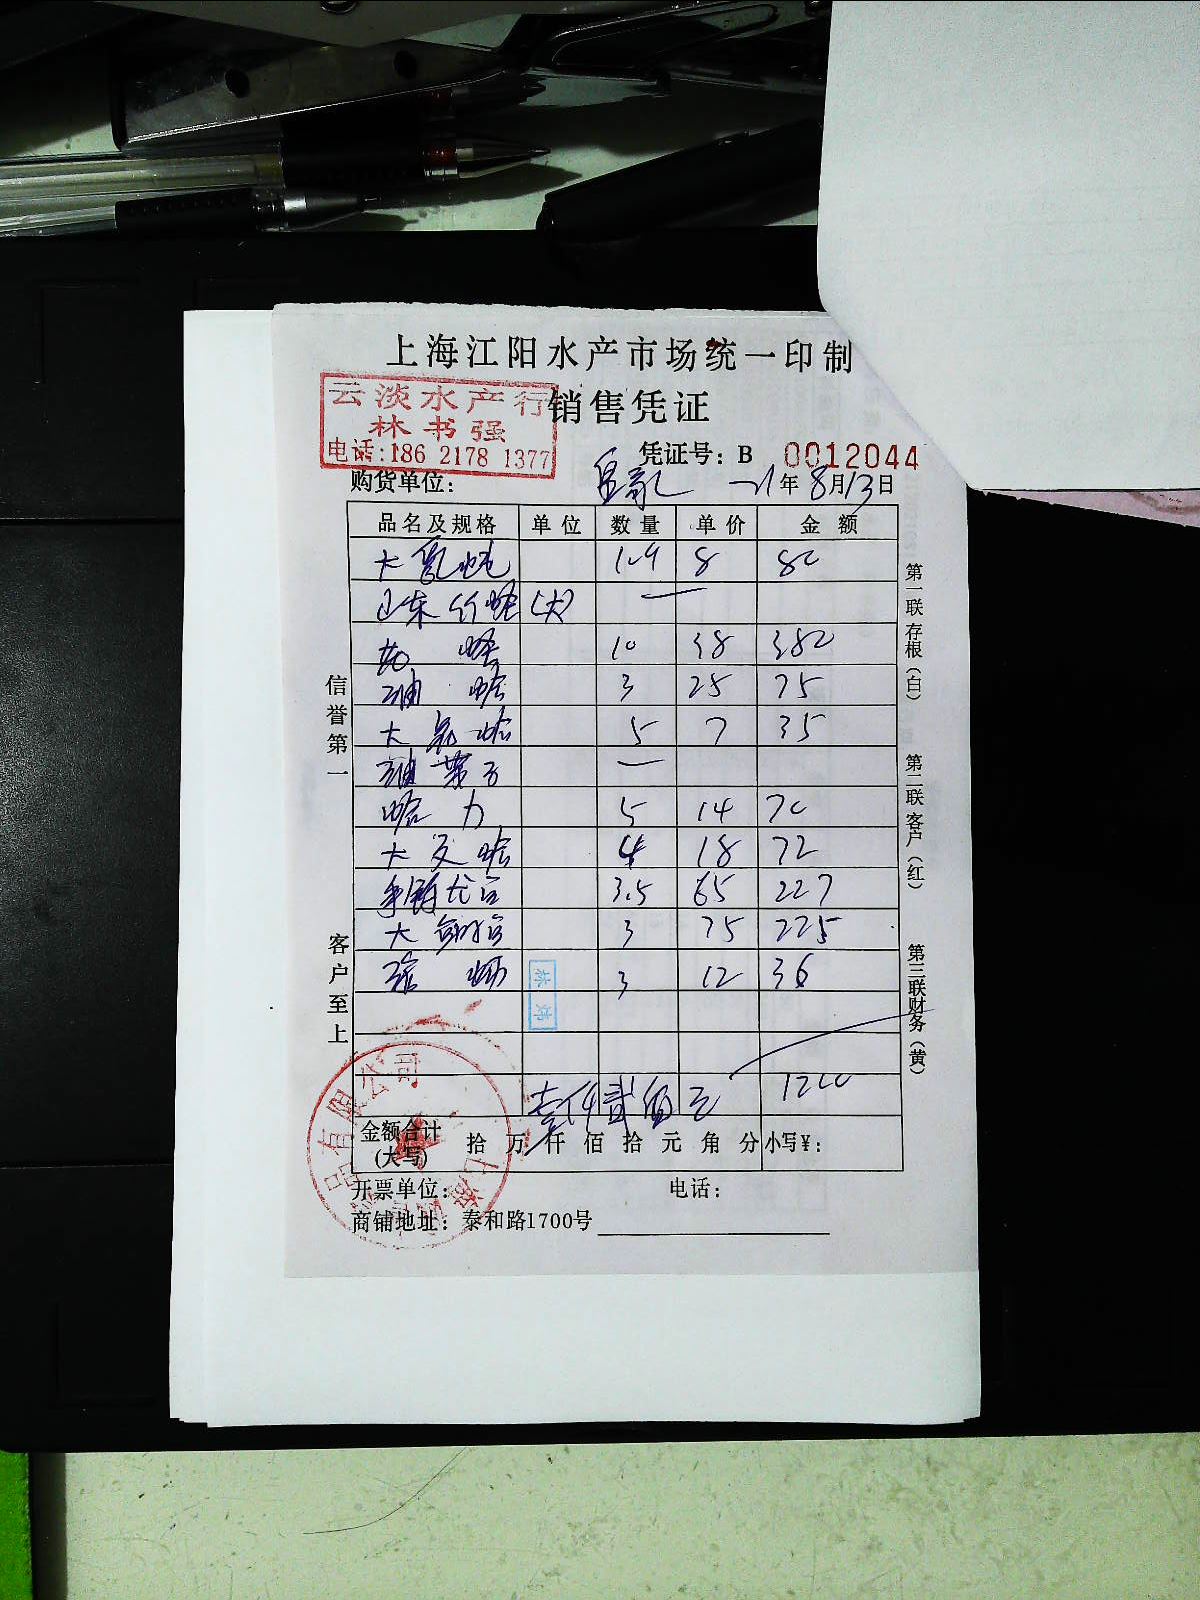 上海江阳水产市场统一印制
云淡水产行
销售凭证
林书强
电话:186 2178 1377
凭证号: B 0012044
购货单位: 年 8 月 13 日
品名及规格 单位 数量 单价 金额
大 8 80
山东 (大) 一
10 38 380
油蛤 3 25 75
大 蛤 5 7 35
油 子 一
蛤力 5 14 70
大 蛤 4 18 72
3.5 65 227
大 3 75 225
3 12 36
壹仟贰佰元 1200
金额合计(大写) 拾 万 仟 佰 拾 元 角 分 小写¥:
开票单位: 电话:
商铺地址: 泰和路1700号
信誉第一
客户至上
第一联 存根(白)
第二联 客户(红)
第三联 财务(黄)